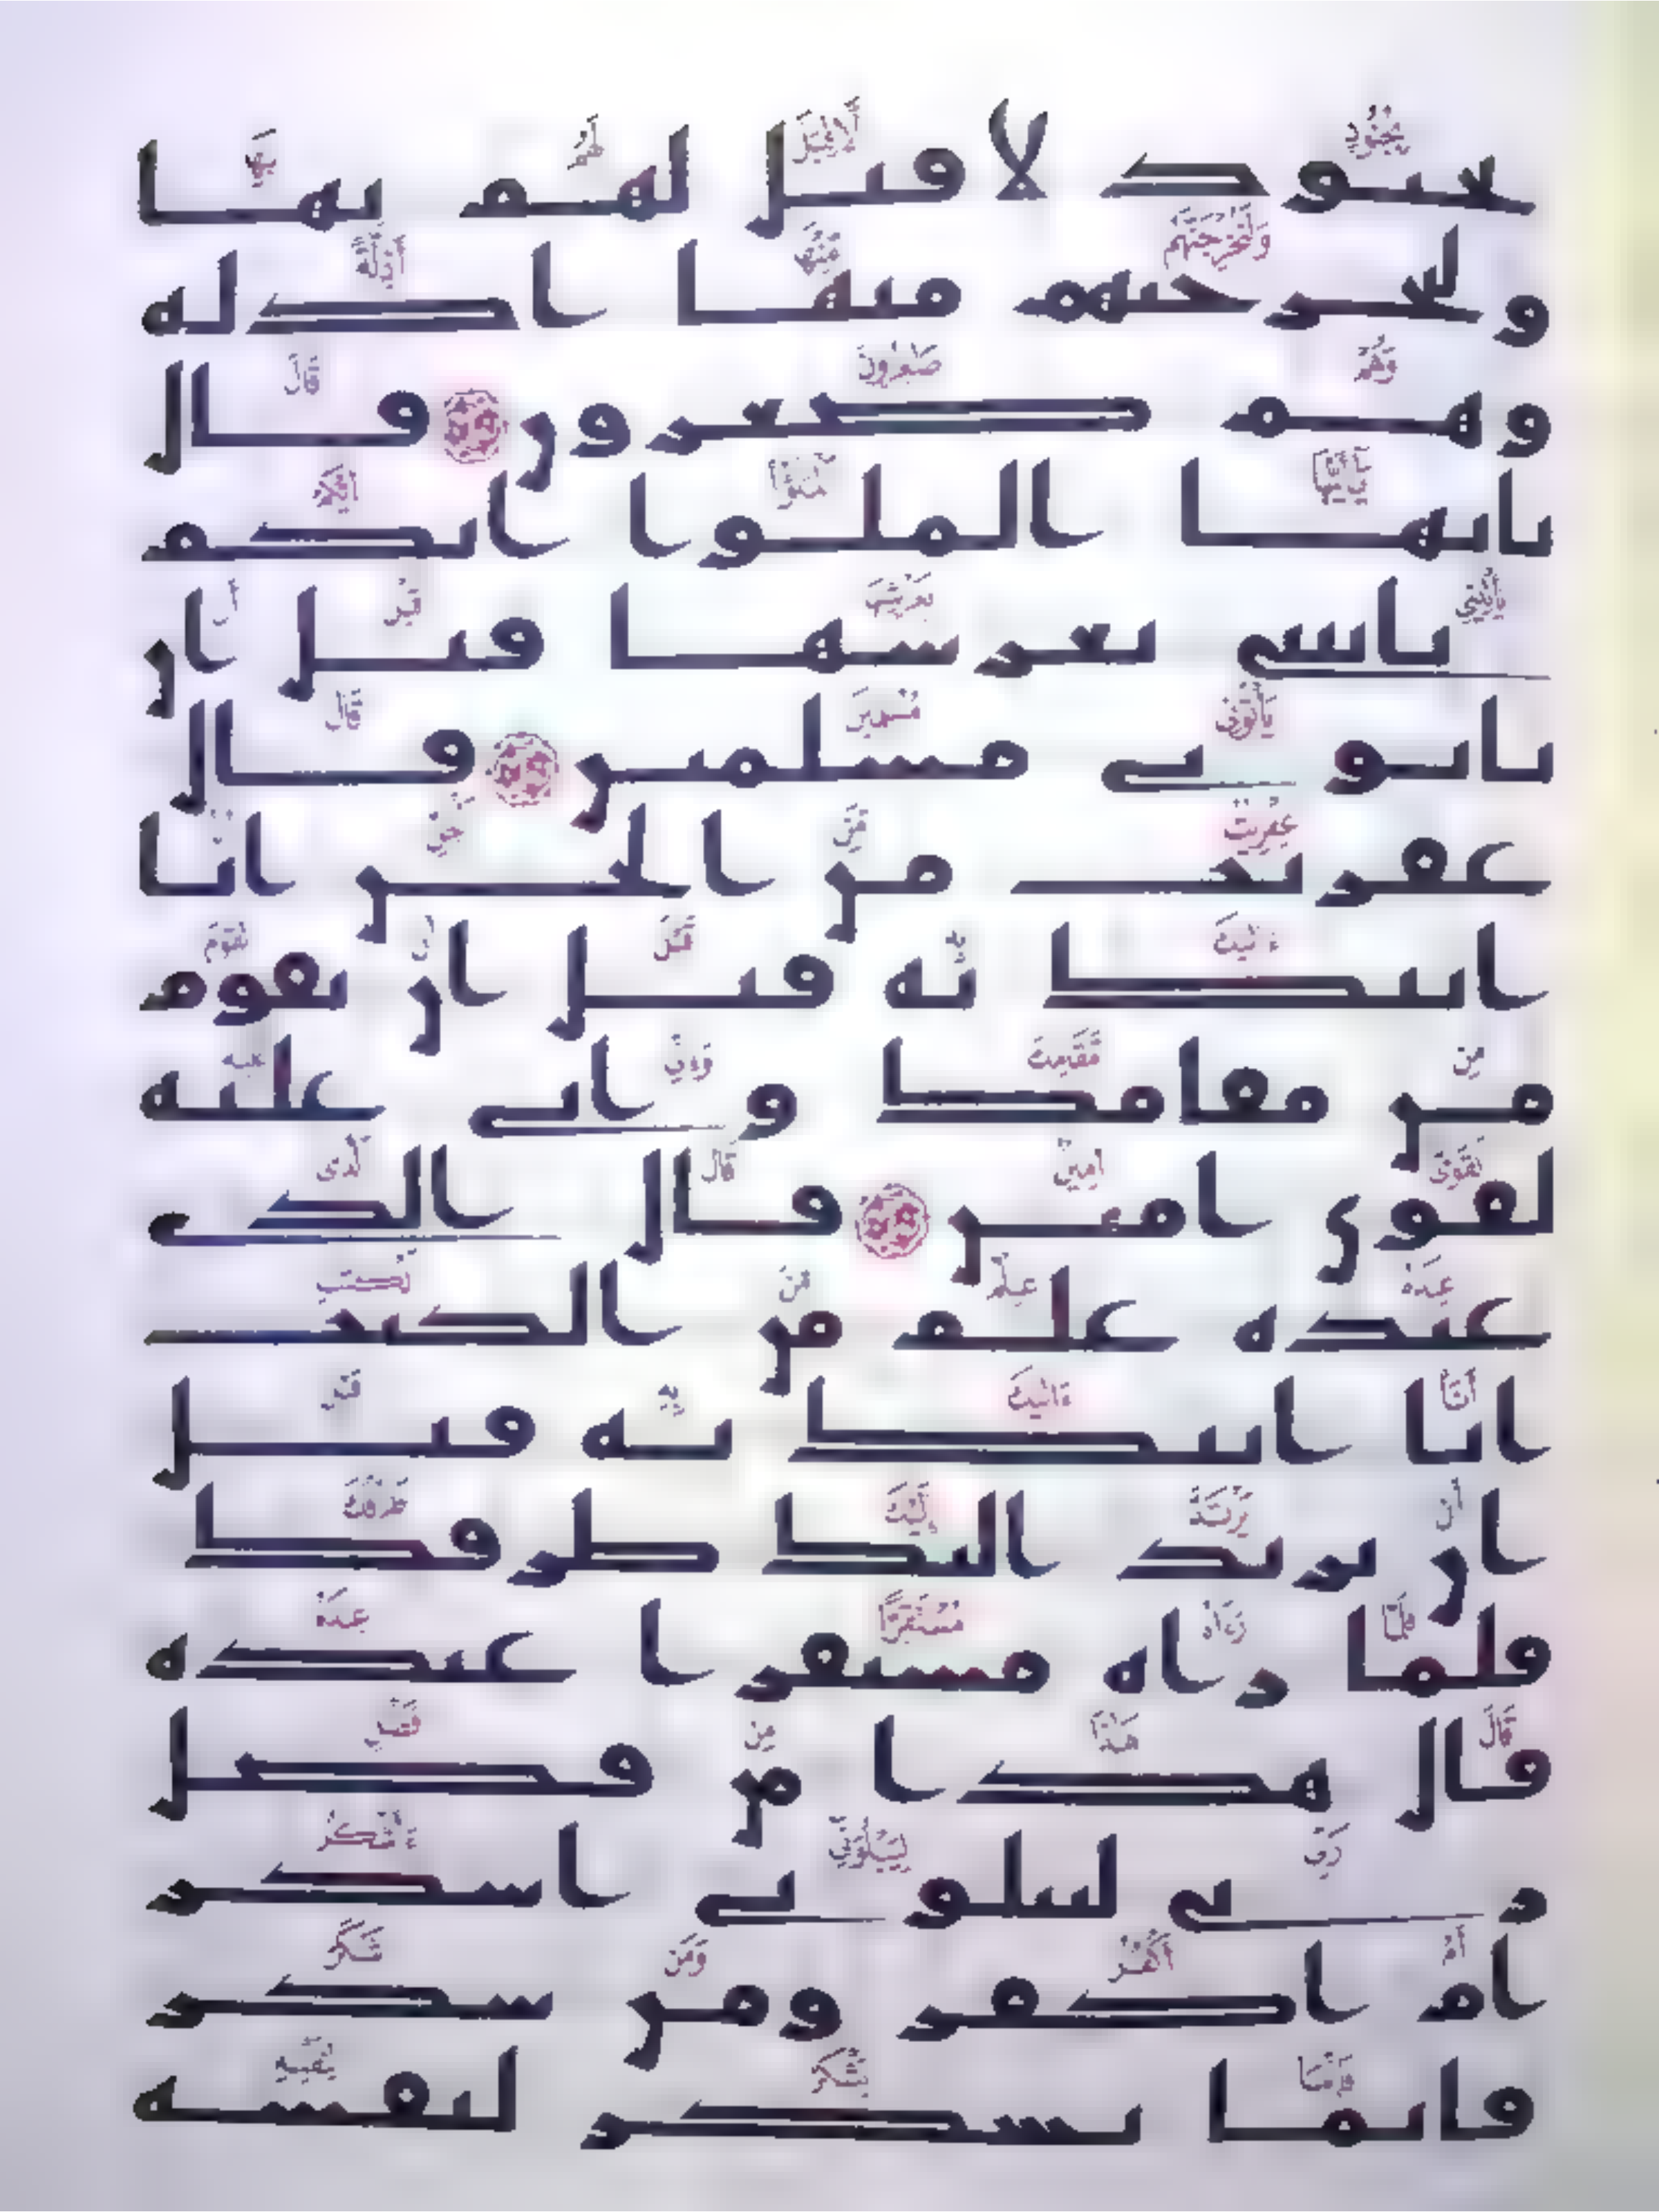 بجنود لا قبل لهم بها
ولنخرجنهم منها اذله
وهم صغرون قال
يايها الملوا ايكم
ياتينى بعرشها قبل ان
ياتونى مسلمين قال
عفريت من الجن انا
اتيك به قبل ان تقوم
من مقامك وانى عليه
لقوى امين قال الذى
عنده علم من الكتب
انا اتيك به قبل
ان يرتد اليك طرفك
فلما راه مستقرا عنده
قال هذا من فضل
ربى ليبلونى اشكر
ام اكفر ومن شكر
فانما يشكر لنفسه